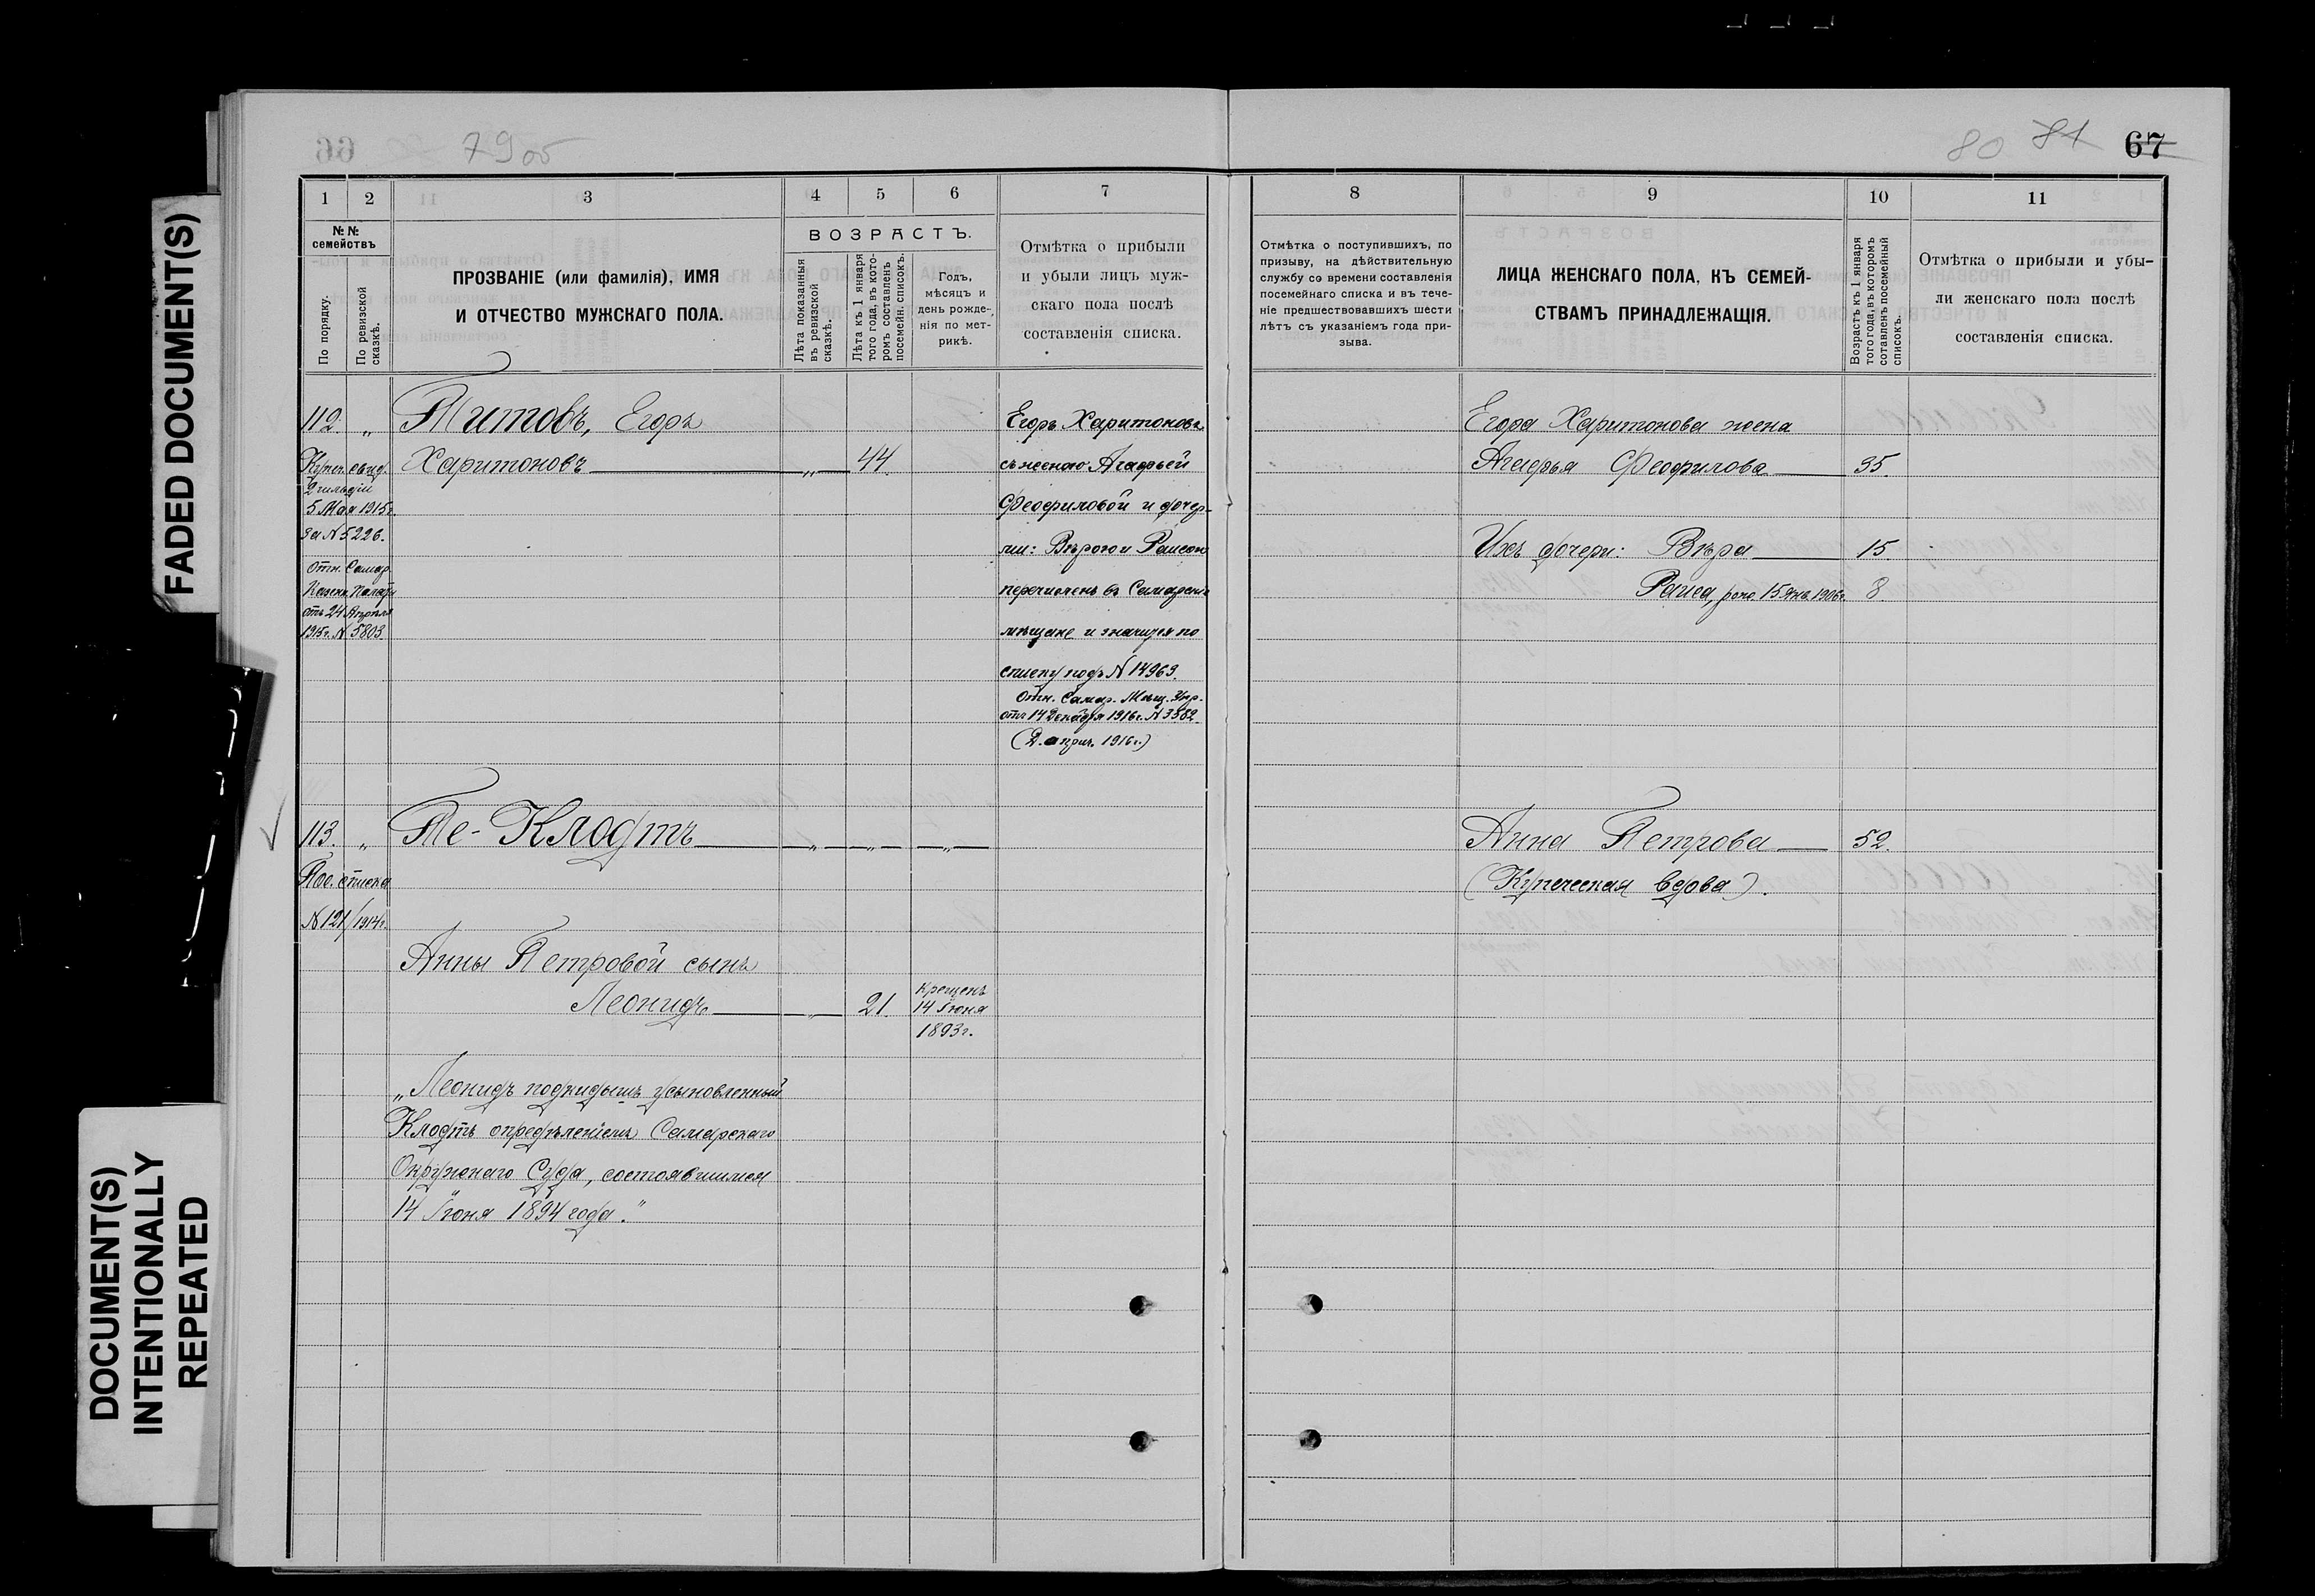 FADED DOCUMENT(S)
DOCUMENT(S)
INTENTIONALLY
REPEATED
79 об
80 81 67
1 2 3 4 5 6 7
№ №
семействъ
По порядку.
По ревизской
сказкѣ.
ПРОЗВАНІЕ (или фамилія), ИМЯ
И ОТЧЕСТВО МУЖСКАГО ПОЛА.
ВОЗРАСТЪ.
Лѣта показанныя
въ ревизской
сказкѣ.
Лѣта къ 1 января
того года, въ кото-
ромъ составленъ
посемейн. списокъ.
Годъ,
мѣсяцъ и
день рожде-
нія по мет-
рикѣ.
Отмѣтка о прибыли
и убыли лицъ муж-
скаго пола послѣ
составленія списка.
112. „ Титовъ, Егоръ
Харитоновъ „ 44.
Купеч. свид.
2 гильдіи
5 Мая 1915 г.
за № 5226.
Отн. Самар.
Казен. Палаты
отъ 24 Апрѣля
1915 г. № 5803.
Егоръ Харитоновъ
съ женою Агафьей
Феофиловой и дочер-
ми: Вѣрою и Раисою
перечисленъ въ Самарскіе
мѣщане и значится по
списку подъ № 14963.
Отн. Самар. Мѣщ. Упр.
отъ 14 Декабря 1916 г. № 3582.
113. „ Те-Клодтъ „ „ „
Пос. списка
№ 121/1914 г.
Анны Петровой сынъ
Леонидъ „ 21.
крещенъ
14 Іюня
1893 г.
„Леонидъ подкидышъ усыновленный
Клодтъ опредѣленіемъ Самарскаго
Окружнаго Суда, состоявшимся
14 Іюня 1894 года."
8 9 10 11
Отмѣтка о поступившихъ, по
призыву, на дѣйствительную
службу со времени составленія
посемейнаго списка и въ тече-
ніе предшествовавшихъ шести
лѣтъ съ указаніемъ года при-
зыва.
ЛИЦА ЖЕНСКАГО ПОЛА, КЪ СЕМЕЙ-
СТВАМЪ ПРИНАДЛЕЖАЩІЯ.
Возрастъ къ 1 января
того года, въ которомъ
сотавленъ посемейный
списокъ.
Отмѣтка о прибыли и убы-
ли женскаго пола послѣ
составленія списка.
Егора Харитонова жена
Агафья Феофилова 35.
Ихъ дочери: Вѣра 15
Раиса, рожд. 15 Янв. 1906 г. 8.
Анна Петрова 52.
(Купеческая вдова).